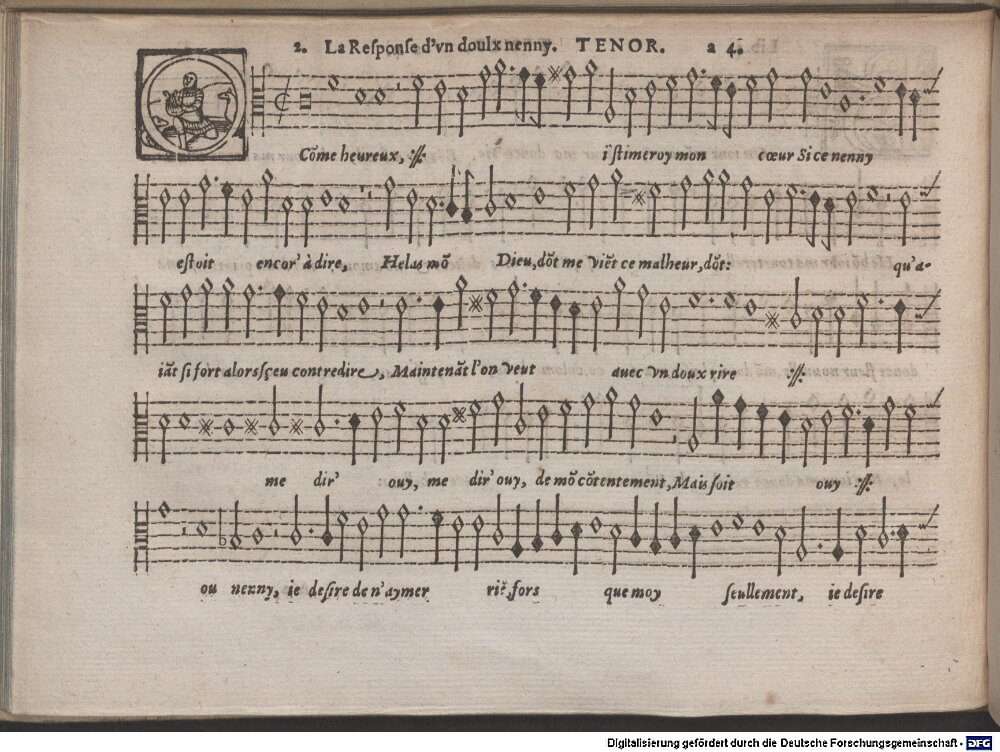 2. La Responſe d'vn doulx nenny. TENOR. a 4.
Cōme heureux, :||: i'eſtimeroy mon cœur Si ce nenny
eſtoit encor' à dire, Helas mō Dieu, dōt me viēt ce malheur, dōt: qu'a-
iāt ſi fort alors ſçeu contredire, Maintenāt l'on veut avec vn doux rire :||:
me dir' ouy, me dir' ouy, de mō cōtentement, Mais ſoit ouy :||:
ou nenny, ie deſire de n'aymer riē, fors que moy ſeullement, ie deſire
Digitalisierung gefördert durch die Deutsche Forschungsgemeinschaft - DFG